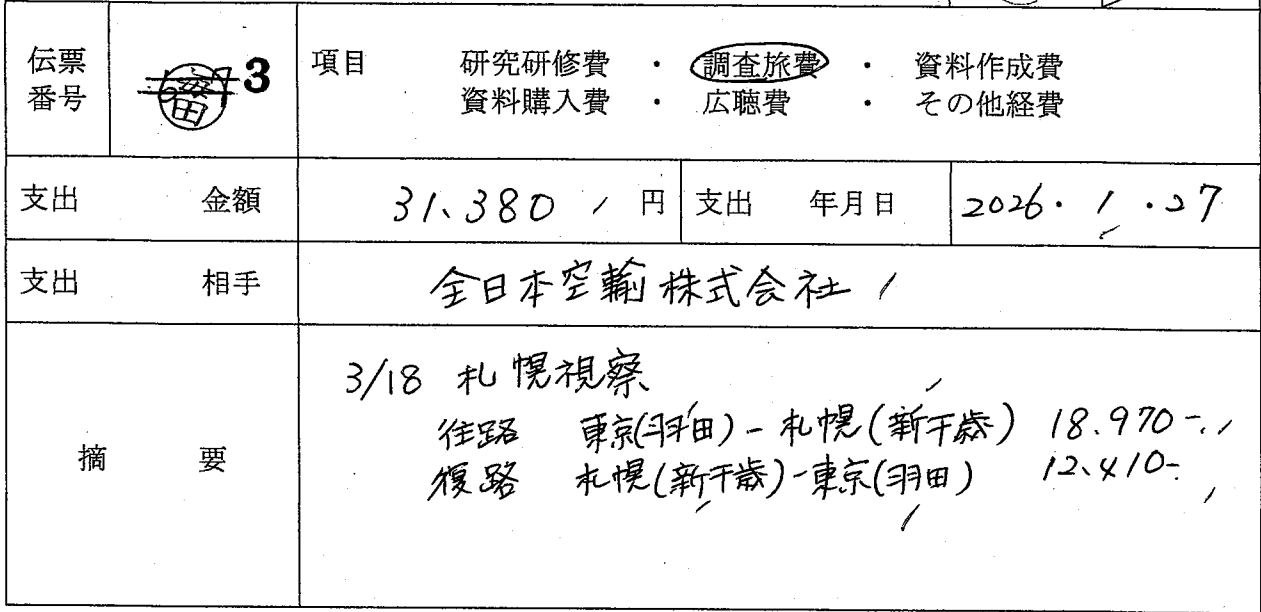 伝票
番号
3
項目 研究研修費 ・ 調査旅費 ・ 資料作成費
資料購入費 ・ 広聴費 ・ その他経費
支出 金額 31、380 円 支出 年月日 2026・1・27
支出 相手 全日本空輸株式会社
摘要
3/18 札幌視察
往路 東京(羽田)-札幌(新千歳) 18.970-
復路 札幌(新千歳)-東京(羽田) 12、410-